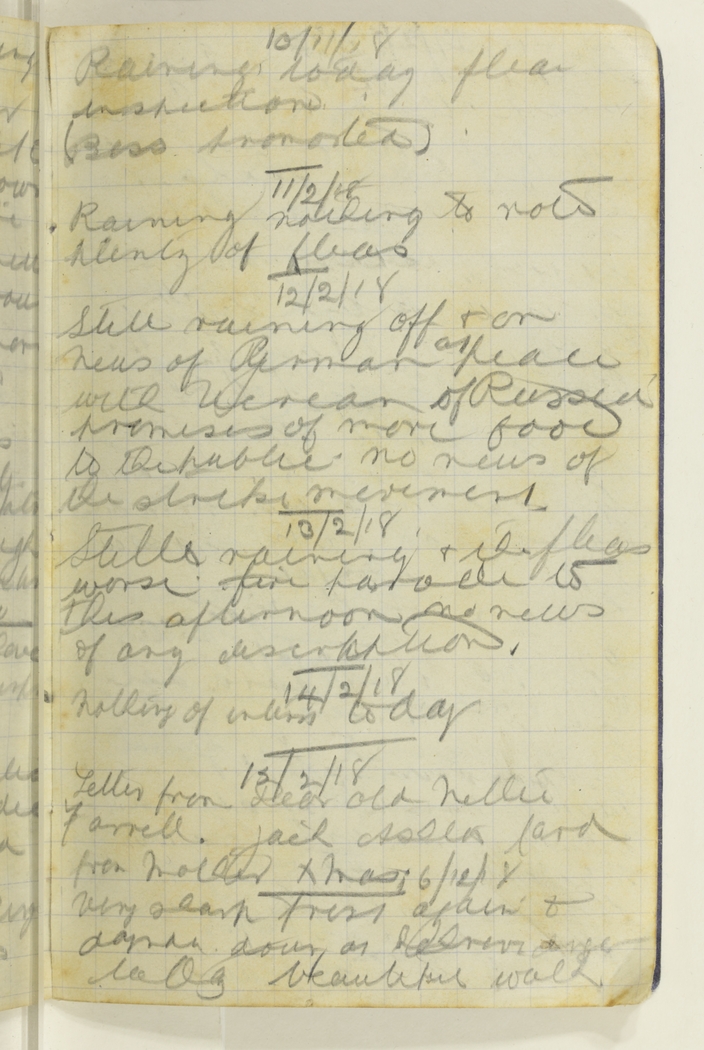 10/11/18
Raining today flea
inspection
(Boss promoted)
11/2/18
Raining nothing to note
plenty of fleas
12/2/18
Still raining off & on
news of German peace
with Ucrean of Russia
promises of more food
to the public no news of
the strike movement
13/2/18
Still raining & the fleas
worse fire parade to
this afternoon no news
of any description.
14/2/18
Nothing of interest today
15/2/18
Letter from dear old Nellie
Farrell. Jack card
from Mother Xmas 16/12/18
Very sharp frost again &
down
beautiful walk